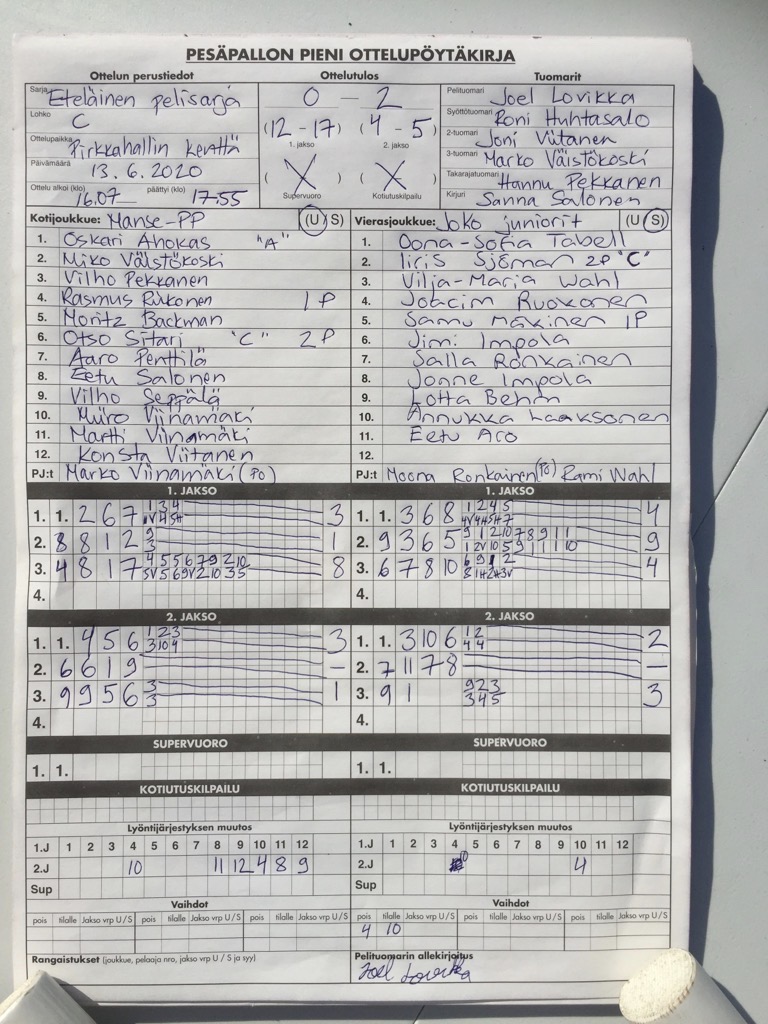 PESÄPALLON PIENI OTTELUPÖYTÄKIRJA
Ottelun perustiedot Ottelutulos Tuomarit
Sarja Eteläinen pelisarja
Lohko C
Ottelupaikka Pirkkahallin kenttä
Päivämäärä 13.6.2020
Ottelu alkoi (klo) 16.07 päättyi (klo) 17.55
0 - 2
(12 - 17) (4 - 5)
1. jakso 2. jakso
( X ) ( X )
Supervuoro Kotiutuskilpailu
Pelituomari Joel Lovikka
Syöttötuomari Roni Huhtasalo
2-tuomari Joni Viitanen
3-tuomari Marko Väistökoski
Takarajatuomari Hannu Pekkanen
Kirjuri Sanna Salonen
Kotijoukkue: Manse-PP (U S)
1. Oskari Ahokas "A"
2. Miko Väistökoski
3. Vilho Pekkanen
4. Rasmus Riikonen 1P
5. Moritz Backman
6. Otso Sitari "C" 2P
7. Aaro Penttilä
8. Eetu Salonen
9. Vilho Seppälä
10. Miiro Viinamäki
11. Martti Viinamäki
12. Konsta Viitanen
PJ:t Marko Viinamäki (PO)
Vierasjoukkue: JoKo juniorit (U S)
1. Oona-Sofia Tabell
2. Iiris Sjöman 2P "C"
3. Vilja-Maria Wahl
4. Joacim Ruokonen
5. Samu Mäkinen 1P
6. Jimi Impola
7. Salla Ronkainen
8. Jonne Impola
9. Lotta Behm
10. Annukka Laaksonen
11. Eetu Aro
12.
PJ:t Moona Ronkainen (PO) Rami Wahl
1. JAKSO 1. JAKSO
1. 1. 2 6 7 1 3 4 3
2. 8 8 1 2 9 3 1
3. 4 8 1 7 4 5 5 6 7 9 2 10 8
5V 5 6 9V 2 10 3 5
4.
1. 1. 3 6 8 1 2 4 5 4
2. 9 3 6 5 9 1 2 10 7 8 9 1 1 9
3. 6 7 8 10 6 9 1 2 4
4.
2. JAKSO 2. JAKSO
1. 1. 4 5 6 1 2 3 3
3 10 4
2. 6 6 1 9 -
3. 9 9 5 6 3 3 1
4.
1. 1. 3 10 6 1 2 2
4 4
2. 7 11 7 8 -
3. 9 1 9 2 3 3
3 4 5
4.
SUPERVUORO SUPERVUORO
1. 1. 1. 1.
KOTIUTUSKILPAILU KOTIUTUSKILPAILU
Lyöntijärjestyksen muutos Lyöntijärjestyksen muutos
1.J 1 2 3 4 5 6 7 8 9 10 11 12 1.J 1 2 3 4 5 6 7 8 9 10 11 12
2.J 10 11 12 4 8 9 2.J 10 4
Sup Sup
Vaihdot Vaihdot
pois tilalle Jakso vrp U / S pois tilalle Jakso vrp U / S pois tilalle Jakso vrp U / S pois tilalle Jakso vrp U / S pois tilalle Jakso vrp U / S pois tilalle Jakso vrp U / S
4 10
Rangaistukset (joukkue, pelaaja nro, jakso vrp U / S ja syy) Pelituomarin allekirjoitus
Joel Lovikka